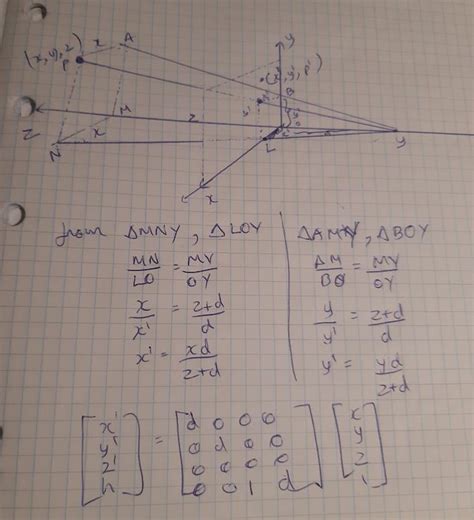 (x, y, z)
P
x
A
y
(x', y', p')
B
M
x
z
Z
N
L
y
x
from ΔMNY, ΔLOY
MN/LO = MY/OY
x/x' = z+d/d
x' = xd/z+d
ΔAMY, ΔBOY
AM/BO = MY/OY
y/y' = z+d/d
y' = yd/z+d
[x' y' z' h] = [d 0 0 0
0 d 0 0
0 0 0 0
0 0 1 d] [x y z 1]